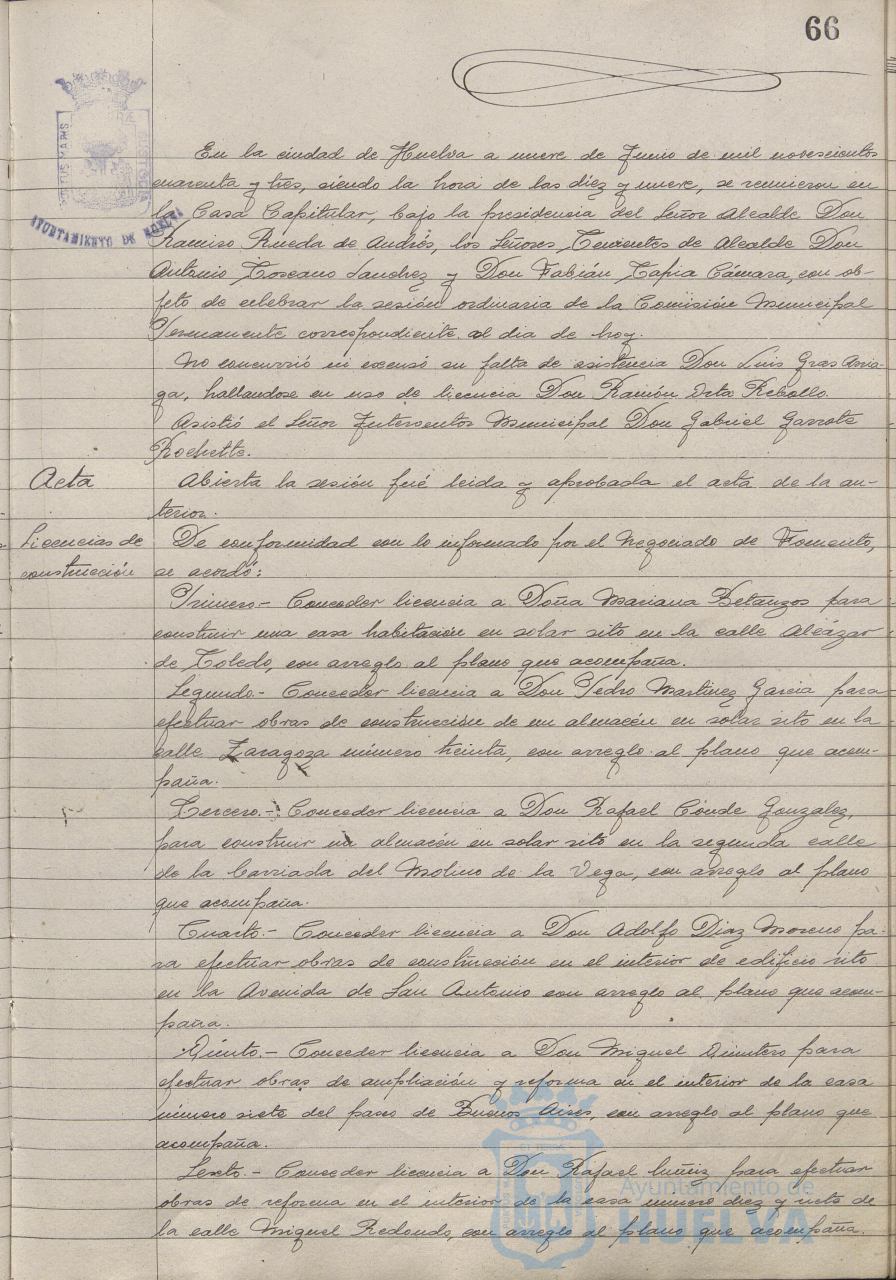 66
En la ciudad de Huelva a nueve de Junio de mil novescientos
cuarenta y tres, siendo la hora de las diez y nueve, se reunieron en
la Casa Capitular, bajo la presidencia del Señor Alcalde Don
Ramiro Rueda de Andrés, los Señores Tenientes de Alcalde Don
Antonio Toscano Sanchez y Don Fabián Tapia Cámara, con ob-
jeto de celebrar la sesión ordinaria de la Comisión Municipal
Permanente correspondiente al dia de hoy.
No concurrió ni excusó su falta de asistencia Don Luis Gras Arria-
ga, hallandose en uso de licencia Don Ramón Orta Rebollo.
Asistió el Señor Interventor Municipal Don Gabriel Garrote
Rochette.
Acta
Abierta la sesión fué leida y aprobada el acta de la an-
terior.
Licencias de
construcción
De conformidad con lo informado por el Negociado de Fomento,
se acordó:
Primero.- Conceder licencia a Doña Mariana Betanzos para
construir una casa habitación en solar sito en la calle Alcázar
de Toledo, con arreglo al plano que acompaña.
Segundo.- Conceder licencia a Don Pedro Martinez Garcia para
efectuar obras de construcción de un almacén en solar sito en la
calle Zaragoza número treinta, con arreglo al plano que acom-
paña.
Tercero.- Conceder licencia a Don Rafael Conde Gonzalez,
para construir un almacén en solar sito en la segunda calle
de la barriada del Molino de la Vega, con arreglo al plano
que acompaña.
Cuarto.- Conceder licencia a Don Adolfo Diaz Moreno pa-
ra efectuar obras de construcción en el interior de edificio sito
en la Avenida de San Antonio con arreglo al plano que acom-
paña.
Quinto.- Conceder licencia a Don Miguel Quintero para
efectuar obras de ampliación y reforma en el interior de la casa
número siete del paseo de Buenos Aires, con arreglo al plano que
acompaña.
Sexto.- Conceder licencia a Don Rafael Muñiz para efectuar
obras de reforma en el interior de la casa número diez y siete de
la calle Miguel Redondo, con arreglo al plano que acompaña.
AYUNTAMIENTO DE HUELVA
Ayuntamiento de
HUELVA